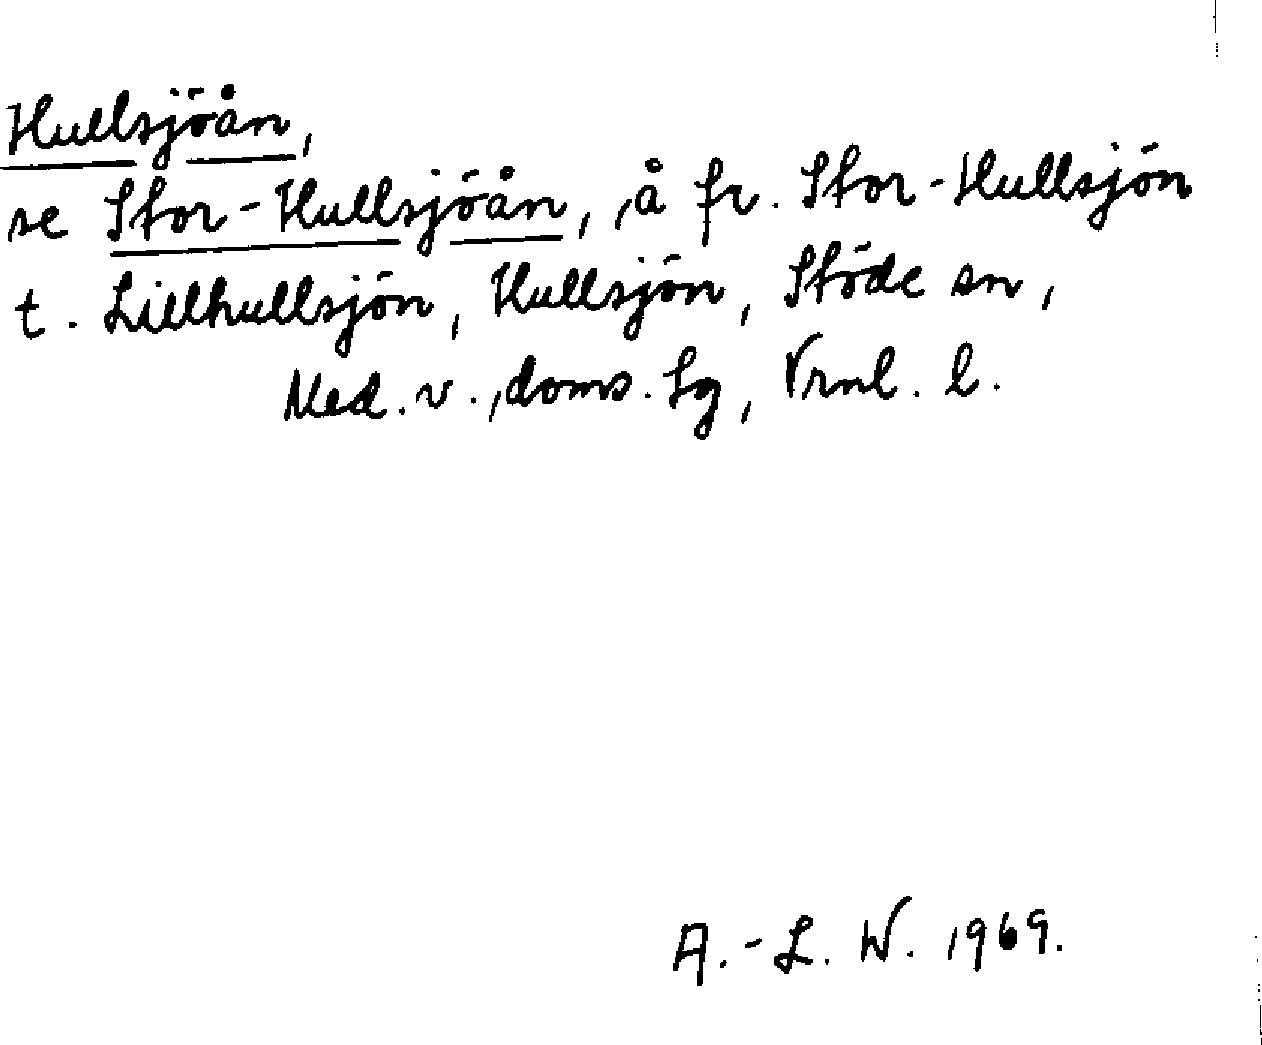 Hullsjöån,
se Stor-Hullsjöån, å fr. Stor-Hullsjön
t. Lillhullsjön, Hullsjön, Stöde sn,
Med. v., doms. Sg, Vrnl. l.
A.-L. W. 1969.